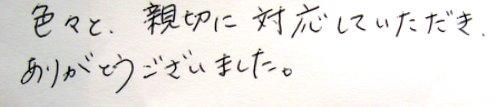 色々と、親切に対応していただき、
ありがとうございました。